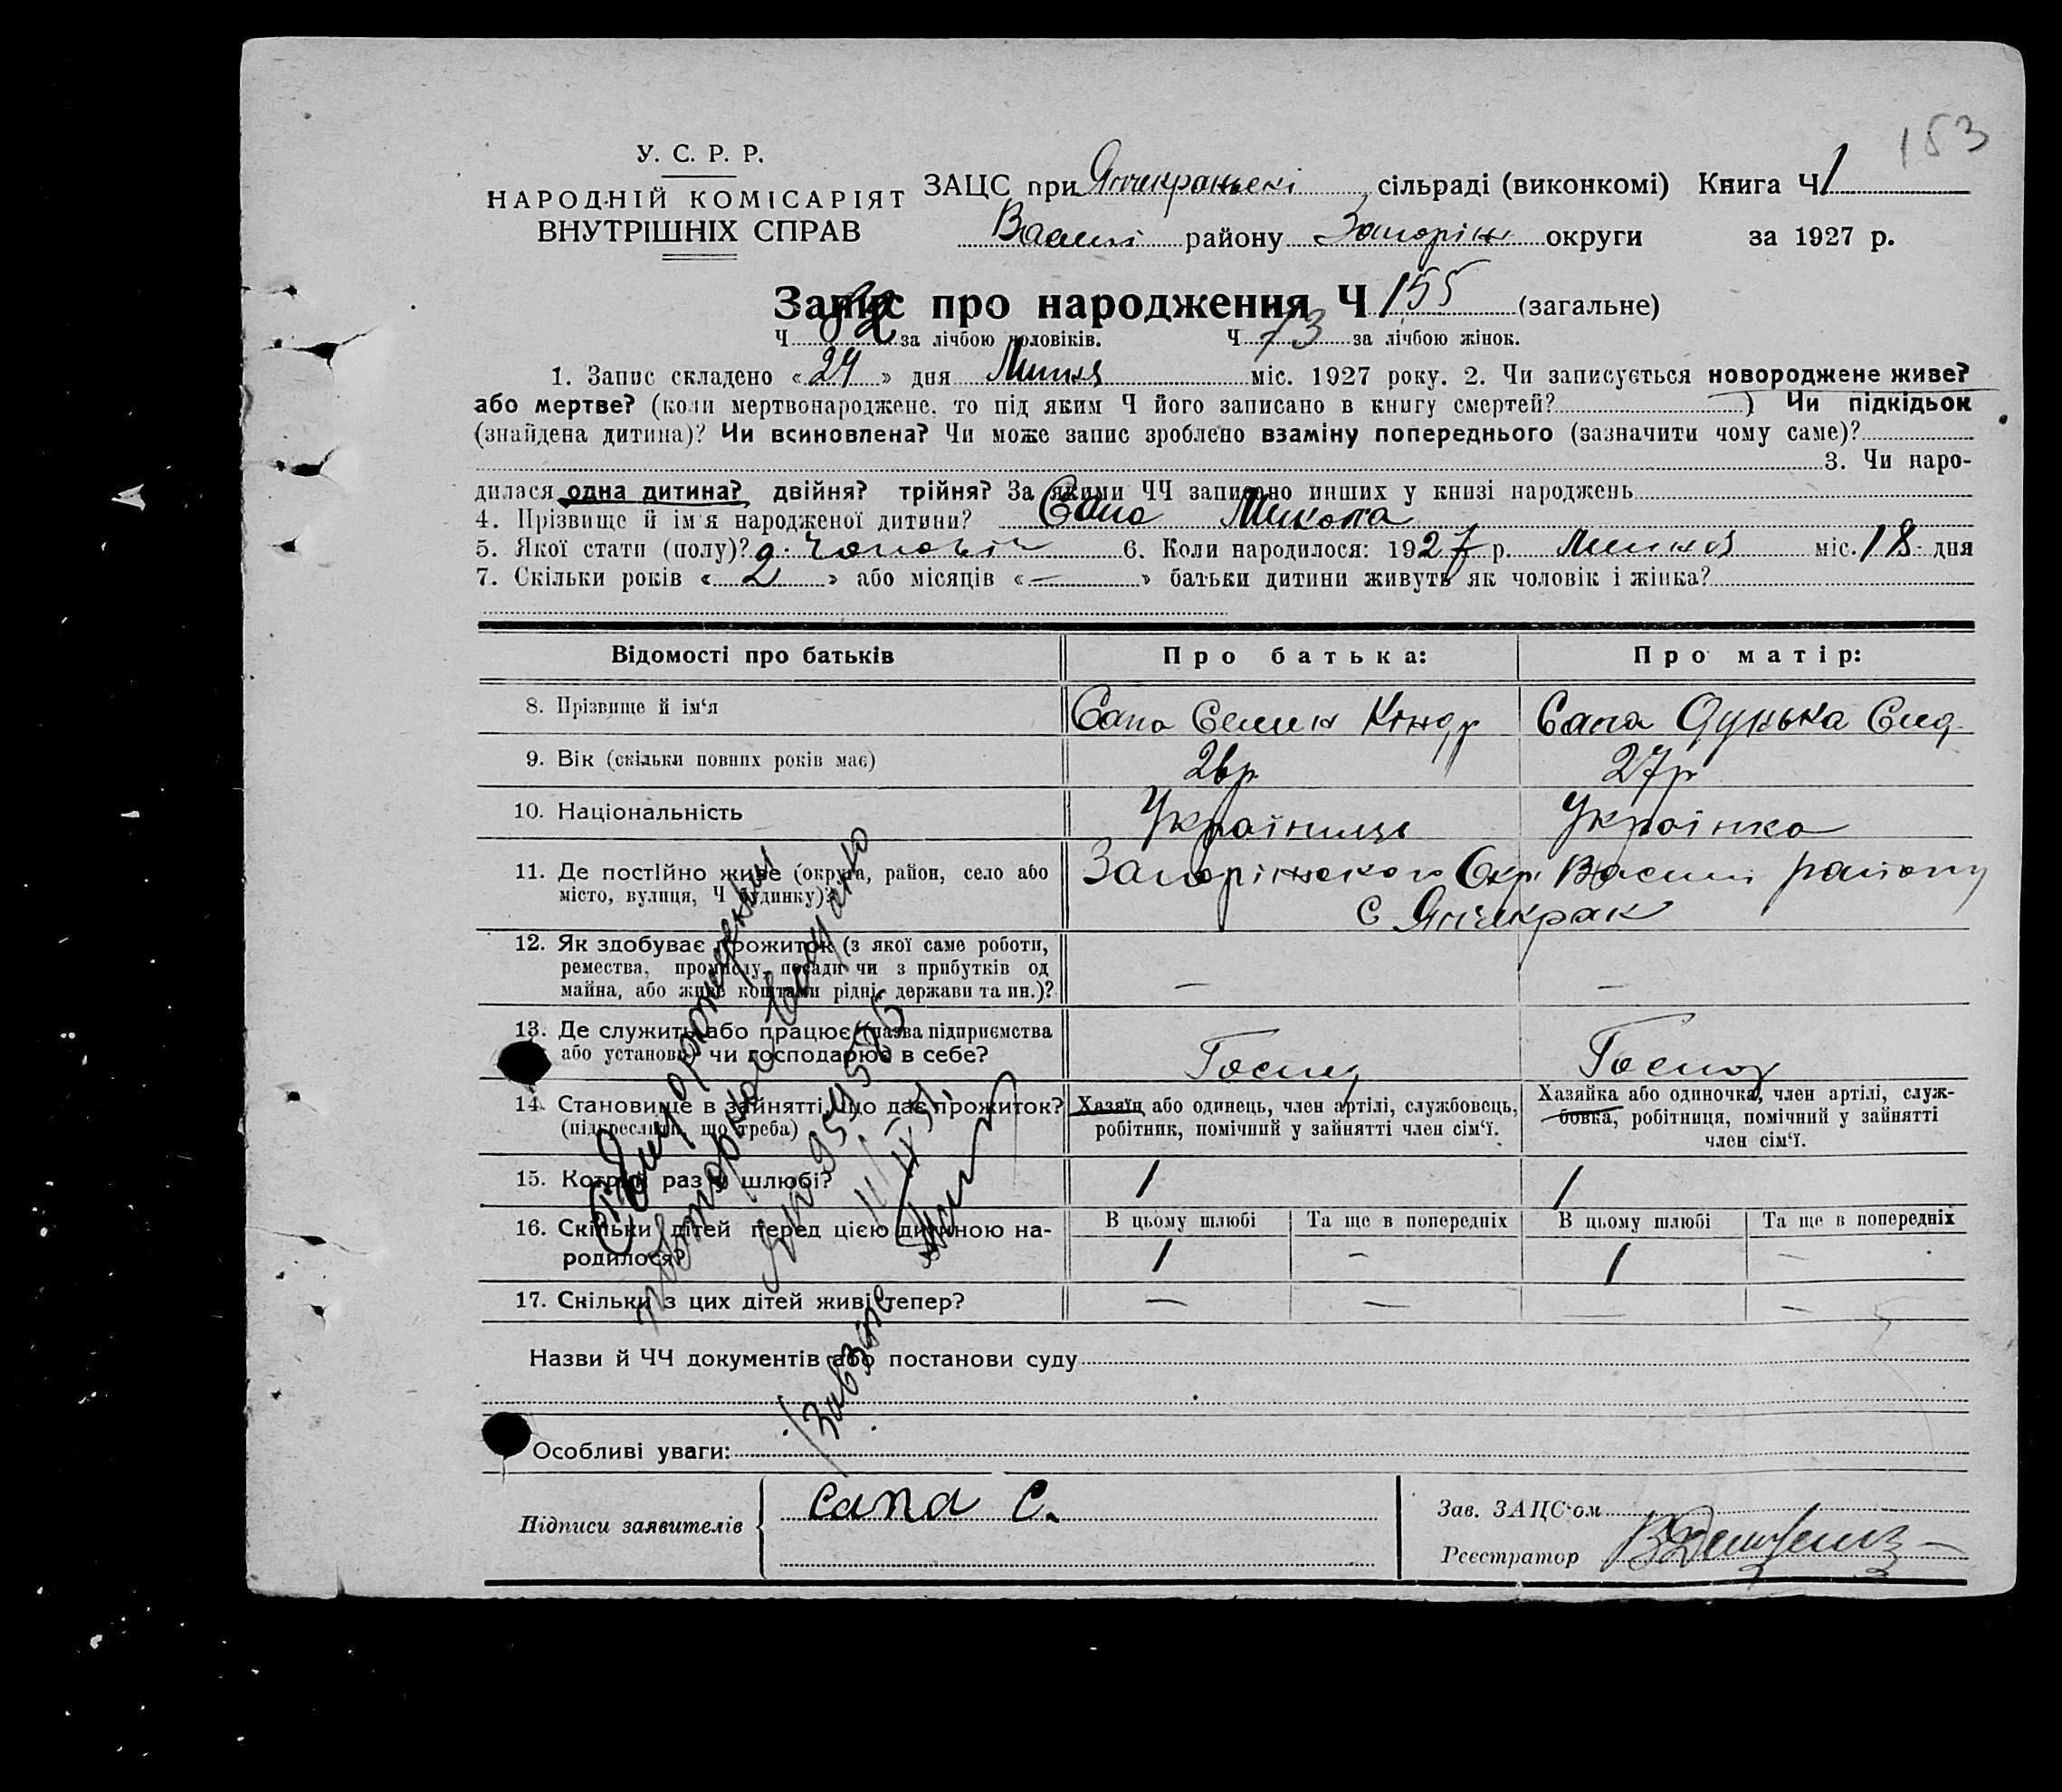 153
У. С. Р. Р.
НАРОДНІЙ КОМІСАРІЯТ
ВНУТРІШНІХ СПРАВ
ЗАЦС при Янчекракській сільраді (виконкомі) Книга Ч 1
Васил району Запоріж округи за 1927 р.
Запис про народження Ч 155 (загальне)
Ч 82 за лічбою чоловіків. Ч 73 за лічбою жінок.
1. Запис складено « 24 » дня Липня міс. 1927 року. 2. Чи записується новороджене живе?
або мертве? (коли мертвонароджене, то під яким Ч його записано в книгу смертей? ) Чи підкідьок
(знайдена дитина)? Чи всиновлена? Чи може запис зроблено взаміну попереднього (зазначити чому саме)?
3. Чи наро-
дилася одна дитина? двійня? трійня? За якими ЧЧ записано инших у книзі народжень
4. Прізвище й ім'я народженої дитини? Сапа Микола
5. Якої стати (полу)? Чоловіч 6. Коли народилося: 1927 р. Липня міс. 18 дня
7. Скільки років « 2 » або місяців « — » батьки дитини живуть як чоловік і жінка?
Відомості про батьків Про батька: Про матір:
8. Прізвище й ім'я Сапа Семен Кіндр Сапа Дунька Сид
9. Вік (скільки повних років має) 26р 27р
10. Національність Українець Українка
11. Де постійно живе (округа, район, село або
місто, вулиця, Ч будинку)?
Запоріжского Окр. Васил району
с Янчекрак
12. Як здобуває прожиток (з якої саме роботи,
ремества, промислу, посади чи з прибутків од
майна, або живе коштами рідні, держави та ин.)? — —
13. Де служить або працює (назва підприємства
або установи) чи господарює в себе? Госпд Господ
14. Становище в зайнятті, що дає прожиток?
(підкреслити, що треба)
Хазяїн або одинець, член артілі, службовець,
робітник, помічний у зайнятті член сім'ї.
Хазяйка або одиночка, член артілі, служ-
бовка, робітниця, помічний у зайнятті
член сім'ї.
15. Котрий раз у шлюбі? 1 1
16. Скільки дітей перед цією дитиною на-
родилося?
В цьому шлюбі Та ще в попередніх В цьому шлюбі Та ще в попередніх
1 — 1 —
17. Скільки з цих дітей живі тепер? — — — —
Назви й ЧЧ документів або постанови суду
Особливі уваги:
Підписи заявителів Сапа С.
Зав. ЗАЦС'ом
Реєстратор